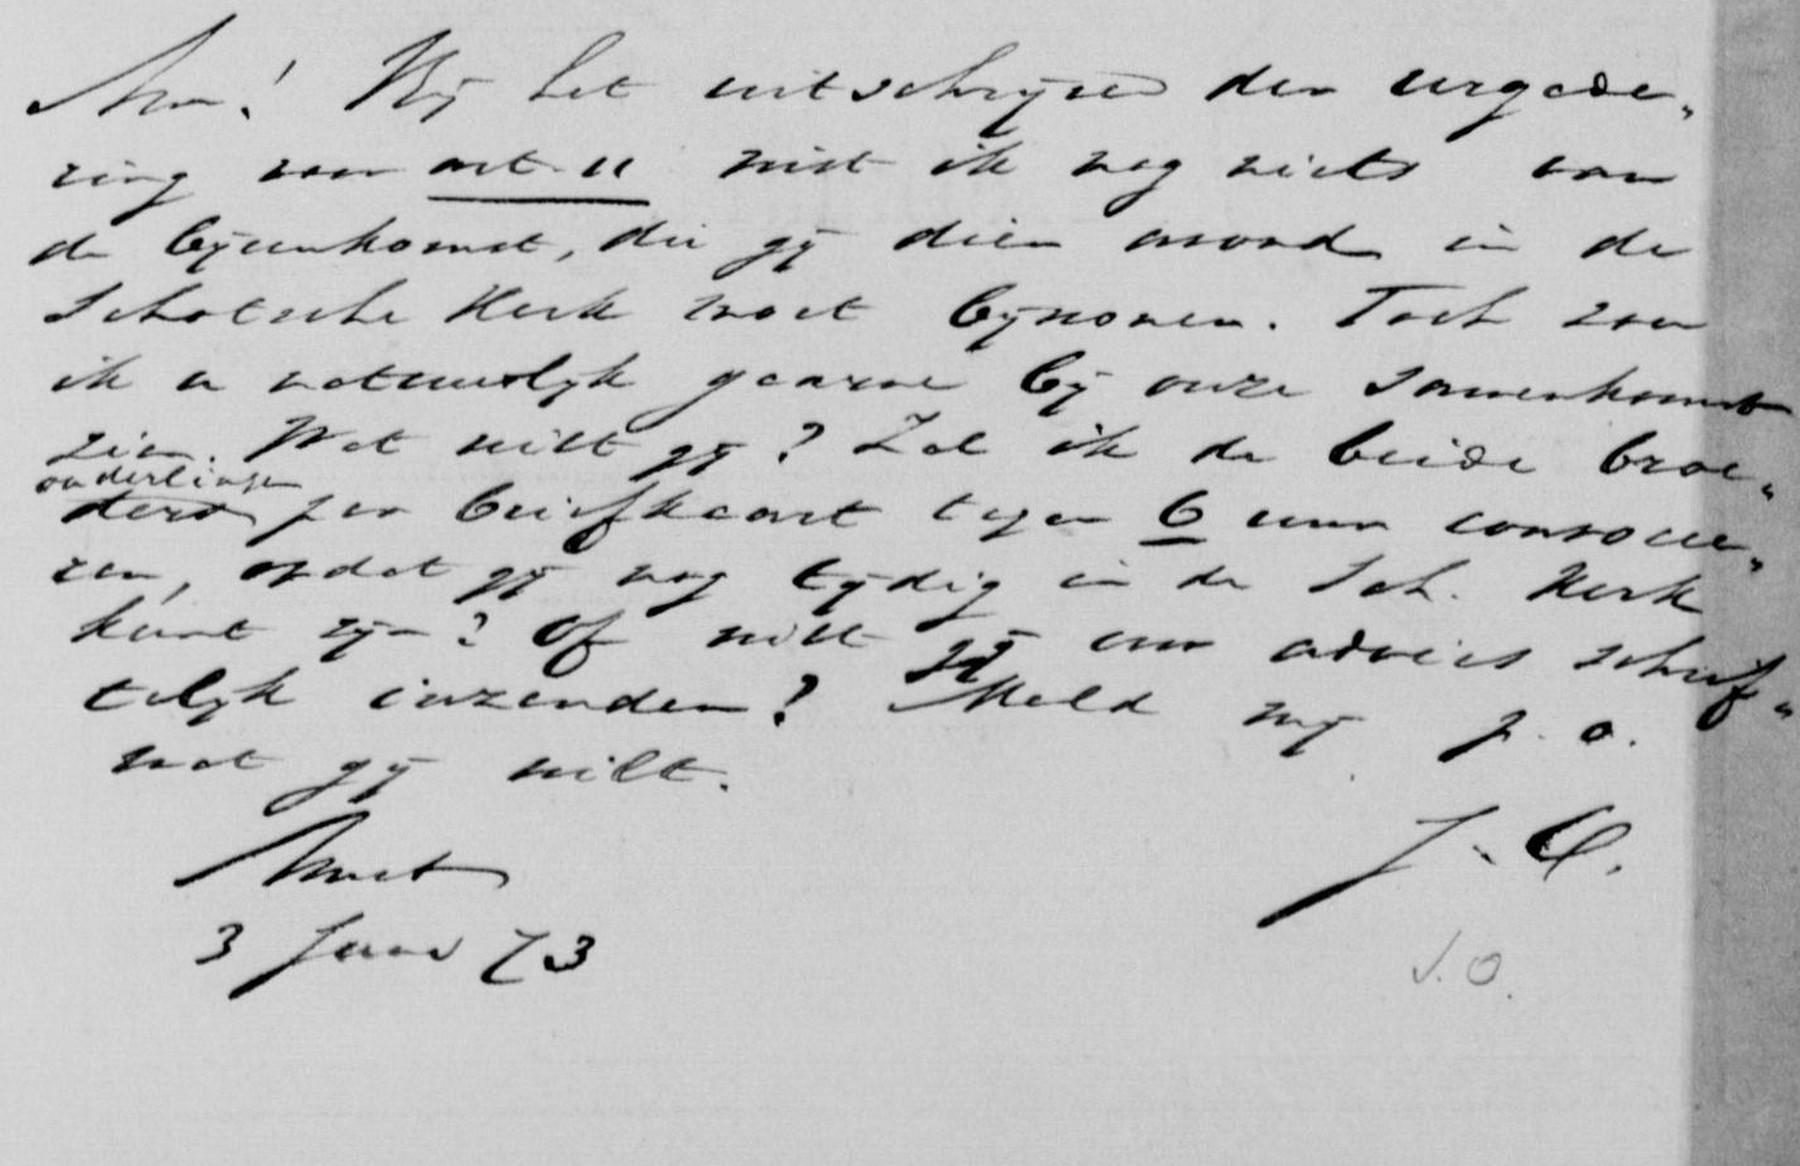 Am! Bij het uitschrijven der vergade„
ring voor art. 11 wist ik nog niets van
de bijeenkomst, die gij dien avond in de
Schotsche Kerk moet bijwonen. Toch zou
ik u natuurlijk gaarne bij onze samenkomst
zien. Wat wilt gij? Zal ik de beide broe„
ouderlingen
ders per briefkaart tegen 6 uur convocee„
ren, opdat gij nog tijdig in de Sch. Kerk
kunt zijn? Of wilt gij uw advies schrif„
telijk inzenden? Meld mij p. o.
wat gij wilt.
Amst
3 Juni 73
J. O.